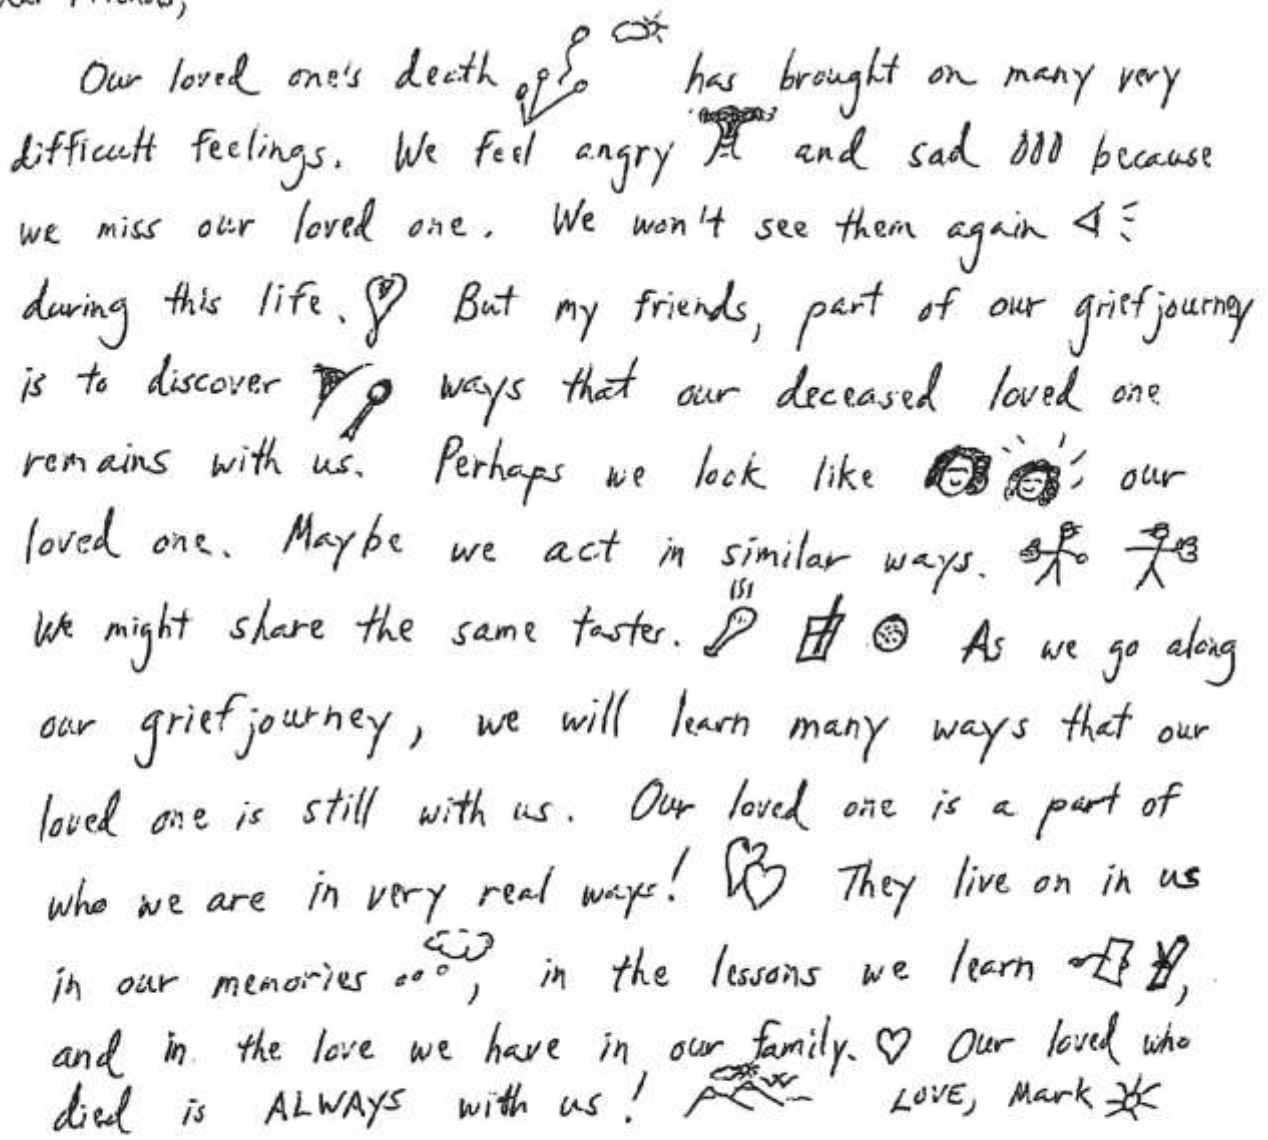 Dear Friends,
Our loved one's death has brought on many very
difficult feelings. We feel angry and sad because
we miss our loved one. We won't see them again
during this life. But my friends, part of our grief journey
is to discover ways that our deceased loved one
remains with us. Perhaps we look like our
loved one. Maybe we act in similar ways.
We might share the same tastes. As we go along
our grief journey, we will learn many ways that our
loved one is still with us. Our loved one is a part of
who we are in very real ways! They live on in us
in our memories, in the lessons we learn,
and in the love we have in our family. Our loved who
died is ALWAYS with us! LOVE, Mark